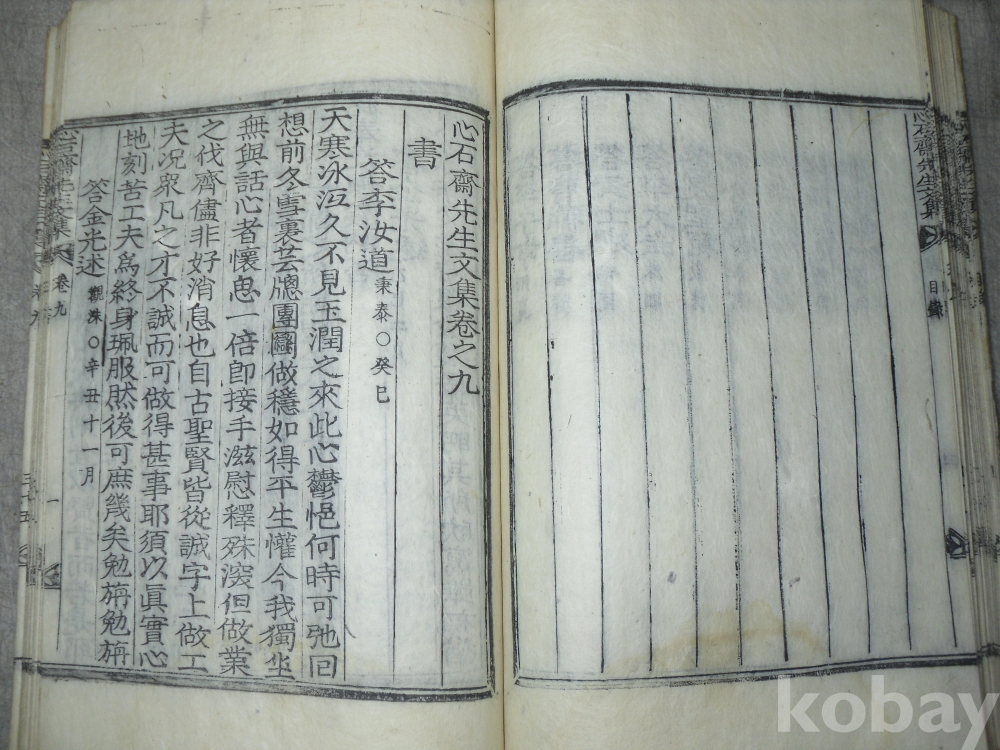 心石齋先生文集卷之九
書
答李汝道 秉泰○癸巳
天寒冰冱久不見玉潤之來此心鬱悒何時可弛回
想前冬雪裏芸牕團圝做穩如得平生懽今我獨坐
無與話心者懷思一倍卽接手滋慰釋殊深但做業
之伐齊儘非好消息也自古聖賢皆從誠字上做工
夫况衆凡之才不誠而可做得甚事耶須以眞實心
地刻苦工夫爲終身珮服然後可庶幾矣勉旃勉旃
答金光述 觀洙○辛丑十一月
心石齋先生文集 卷九 一
心石齋先生文集 目錄
kobay